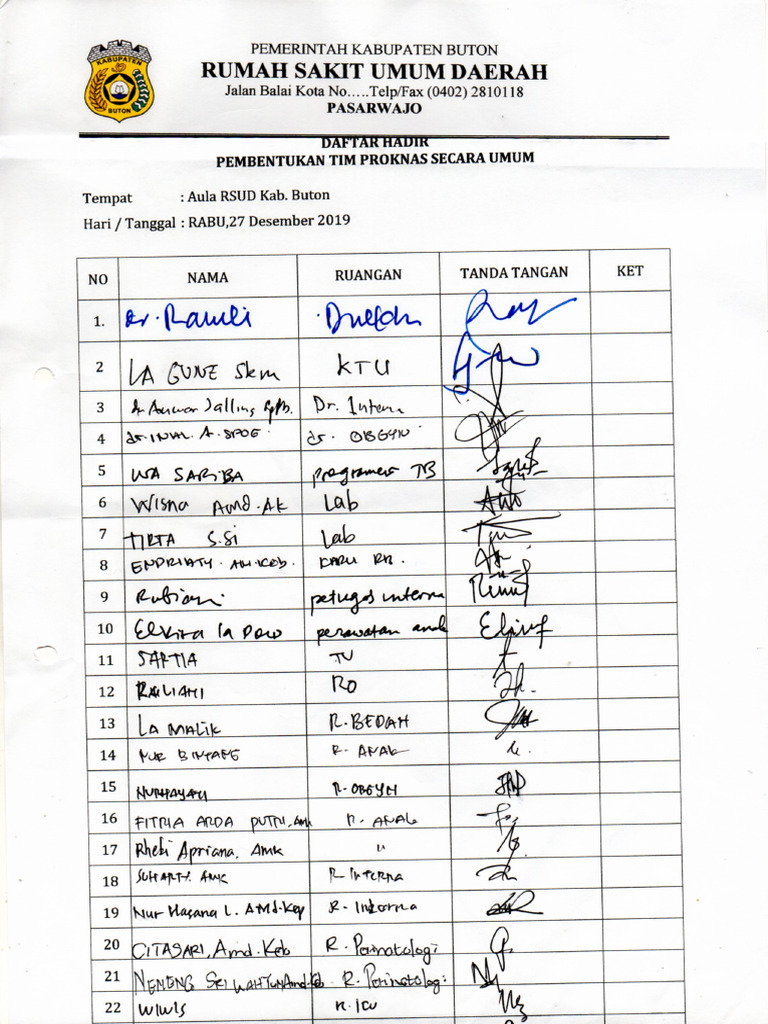 KABUPATEN
BUTON
PEMERINTAH KABUPATEN BUTON
RUMAH SAKIT UMUM DAERAH
Jalan Balai Kota No.....Telp/Fax (0402) 2810118
PASARWAJO
DAFTAR HADIR
PEMBENTUKAN TIM PROKNAS SECARA UMUM
Tempat : Aula RSUD Kab. Buton
Hari / Tanggal : RABU,27 Desember 2019
NO NAMA RUANGAN TANDA TANGAN KET
1. dr. Ramli
2 LA GUNE SKM KTU
3 dr Anwar Jalling Dr. Interna
4 dr. A. SPOG dr. OBGYN
5 WA SARIBA programer TB
6 Wisna Amd.AK Lab
7 TIRTA S.Si Lab
8 ENDRIATY. AM.KEB. KARU RR.
9 Rubiani petugas interna
10 Elvira la Dawo perawatan anak
11 SARTIA TU
12 RAILIANI RO
13 LA MALIK R.BEDAH
14 NUR BINTANG R. ANAK
15 NURHAYATI R.OBGYN
16 FITRIA ARDA PUTRI, AMK R. ANAK
17 Rhebi Apriana, AMK "
18 SUHARTI AMK R INTERNA
19 Nur Hasana L. AMd.Kep R. Interna
20 CITASARI, Amd.Keb R. Perinatologi
21 NENENG SRI WAHYUNI Amd.Keb R. Perinatologi
22 WIWIS R.ICU